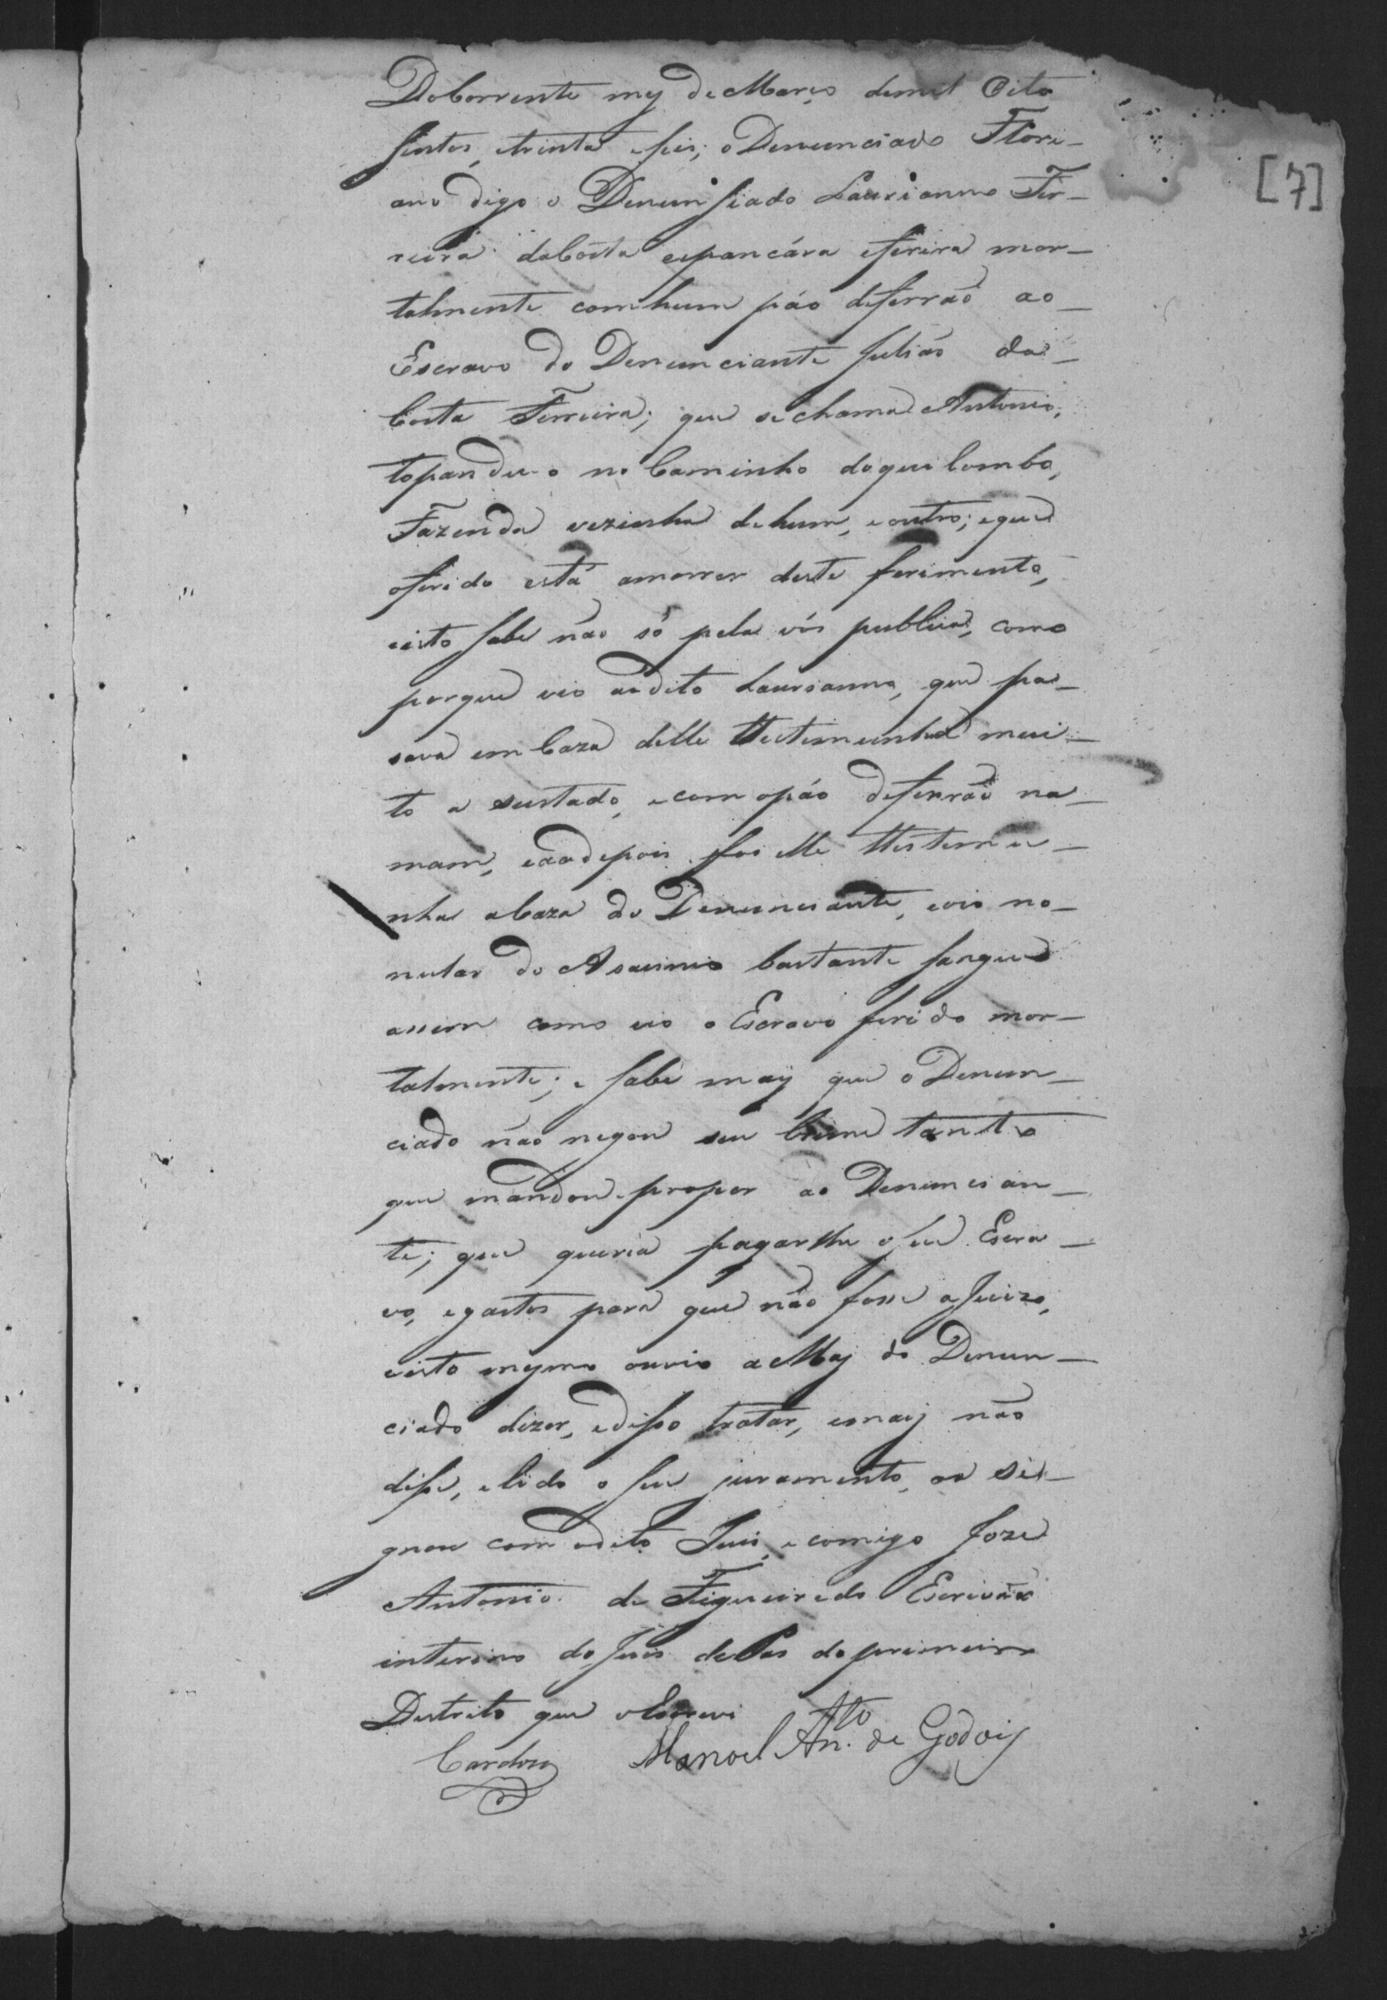 DoCorrente mez de Março demil Oito
sentos, etrinta eseis; o Denunciado Flori-
ano digo o Denunsiado Laurianno Fer-
reira daCosta espancára eferira mor-
talmente comhum páo deferrão ao
Escravo do Denunciante Julião da
Costa Ferreira; que sechama Antonio,
topandu-o no Caminho doquilombo,
Fazenda vezinha dehum, eoutro; eque
oferido está amorrer deste ferimento,
eisto sabe não só pela vós publica, como
porque vio aodito Laurianno, que pa-
sava em Caza delle Testemunha mui-
to a sustado, ecom opáo deferrão na
mam, eaodepois foi elle Testemu-
nha aCaza do Denunciante, evio no
do Asacinio bastante sangue
assim como vio o Escravo ferido mor-
talmente; e sabe mais que o Denun-
ciado não negou seu Crime tanto
que mandou propor ao Denuncian-
te; que queria pagarlhe o seu Escra-
vo, egastos para que não fosse aJuizo,
eisto mesmo ouvio aMai do Denun-
ciado dizer, edisso tratar, emais não
disse, elido o seu juramento, as si-
gnou com odito Juis, e comigo Joze
Antonio de Figueiredo Escrivão
interino do Juis dePas do primeiro
Destrito que oEscrevi
Cardozo Manoel An.to de Godoij
[7]